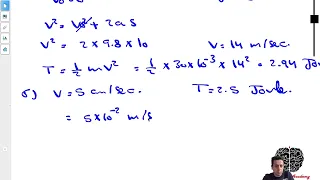 V² = V₀² + 2as
V² = 2 × 9.8 × 10 V = 14 m/sec.
T = ½ mV² = ½ × 30×10⁻³ × 14² = 2.94 Jou
δ) V = 5 cm/sec. T = 2.5 Joule.
= 5×10⁻² m/s